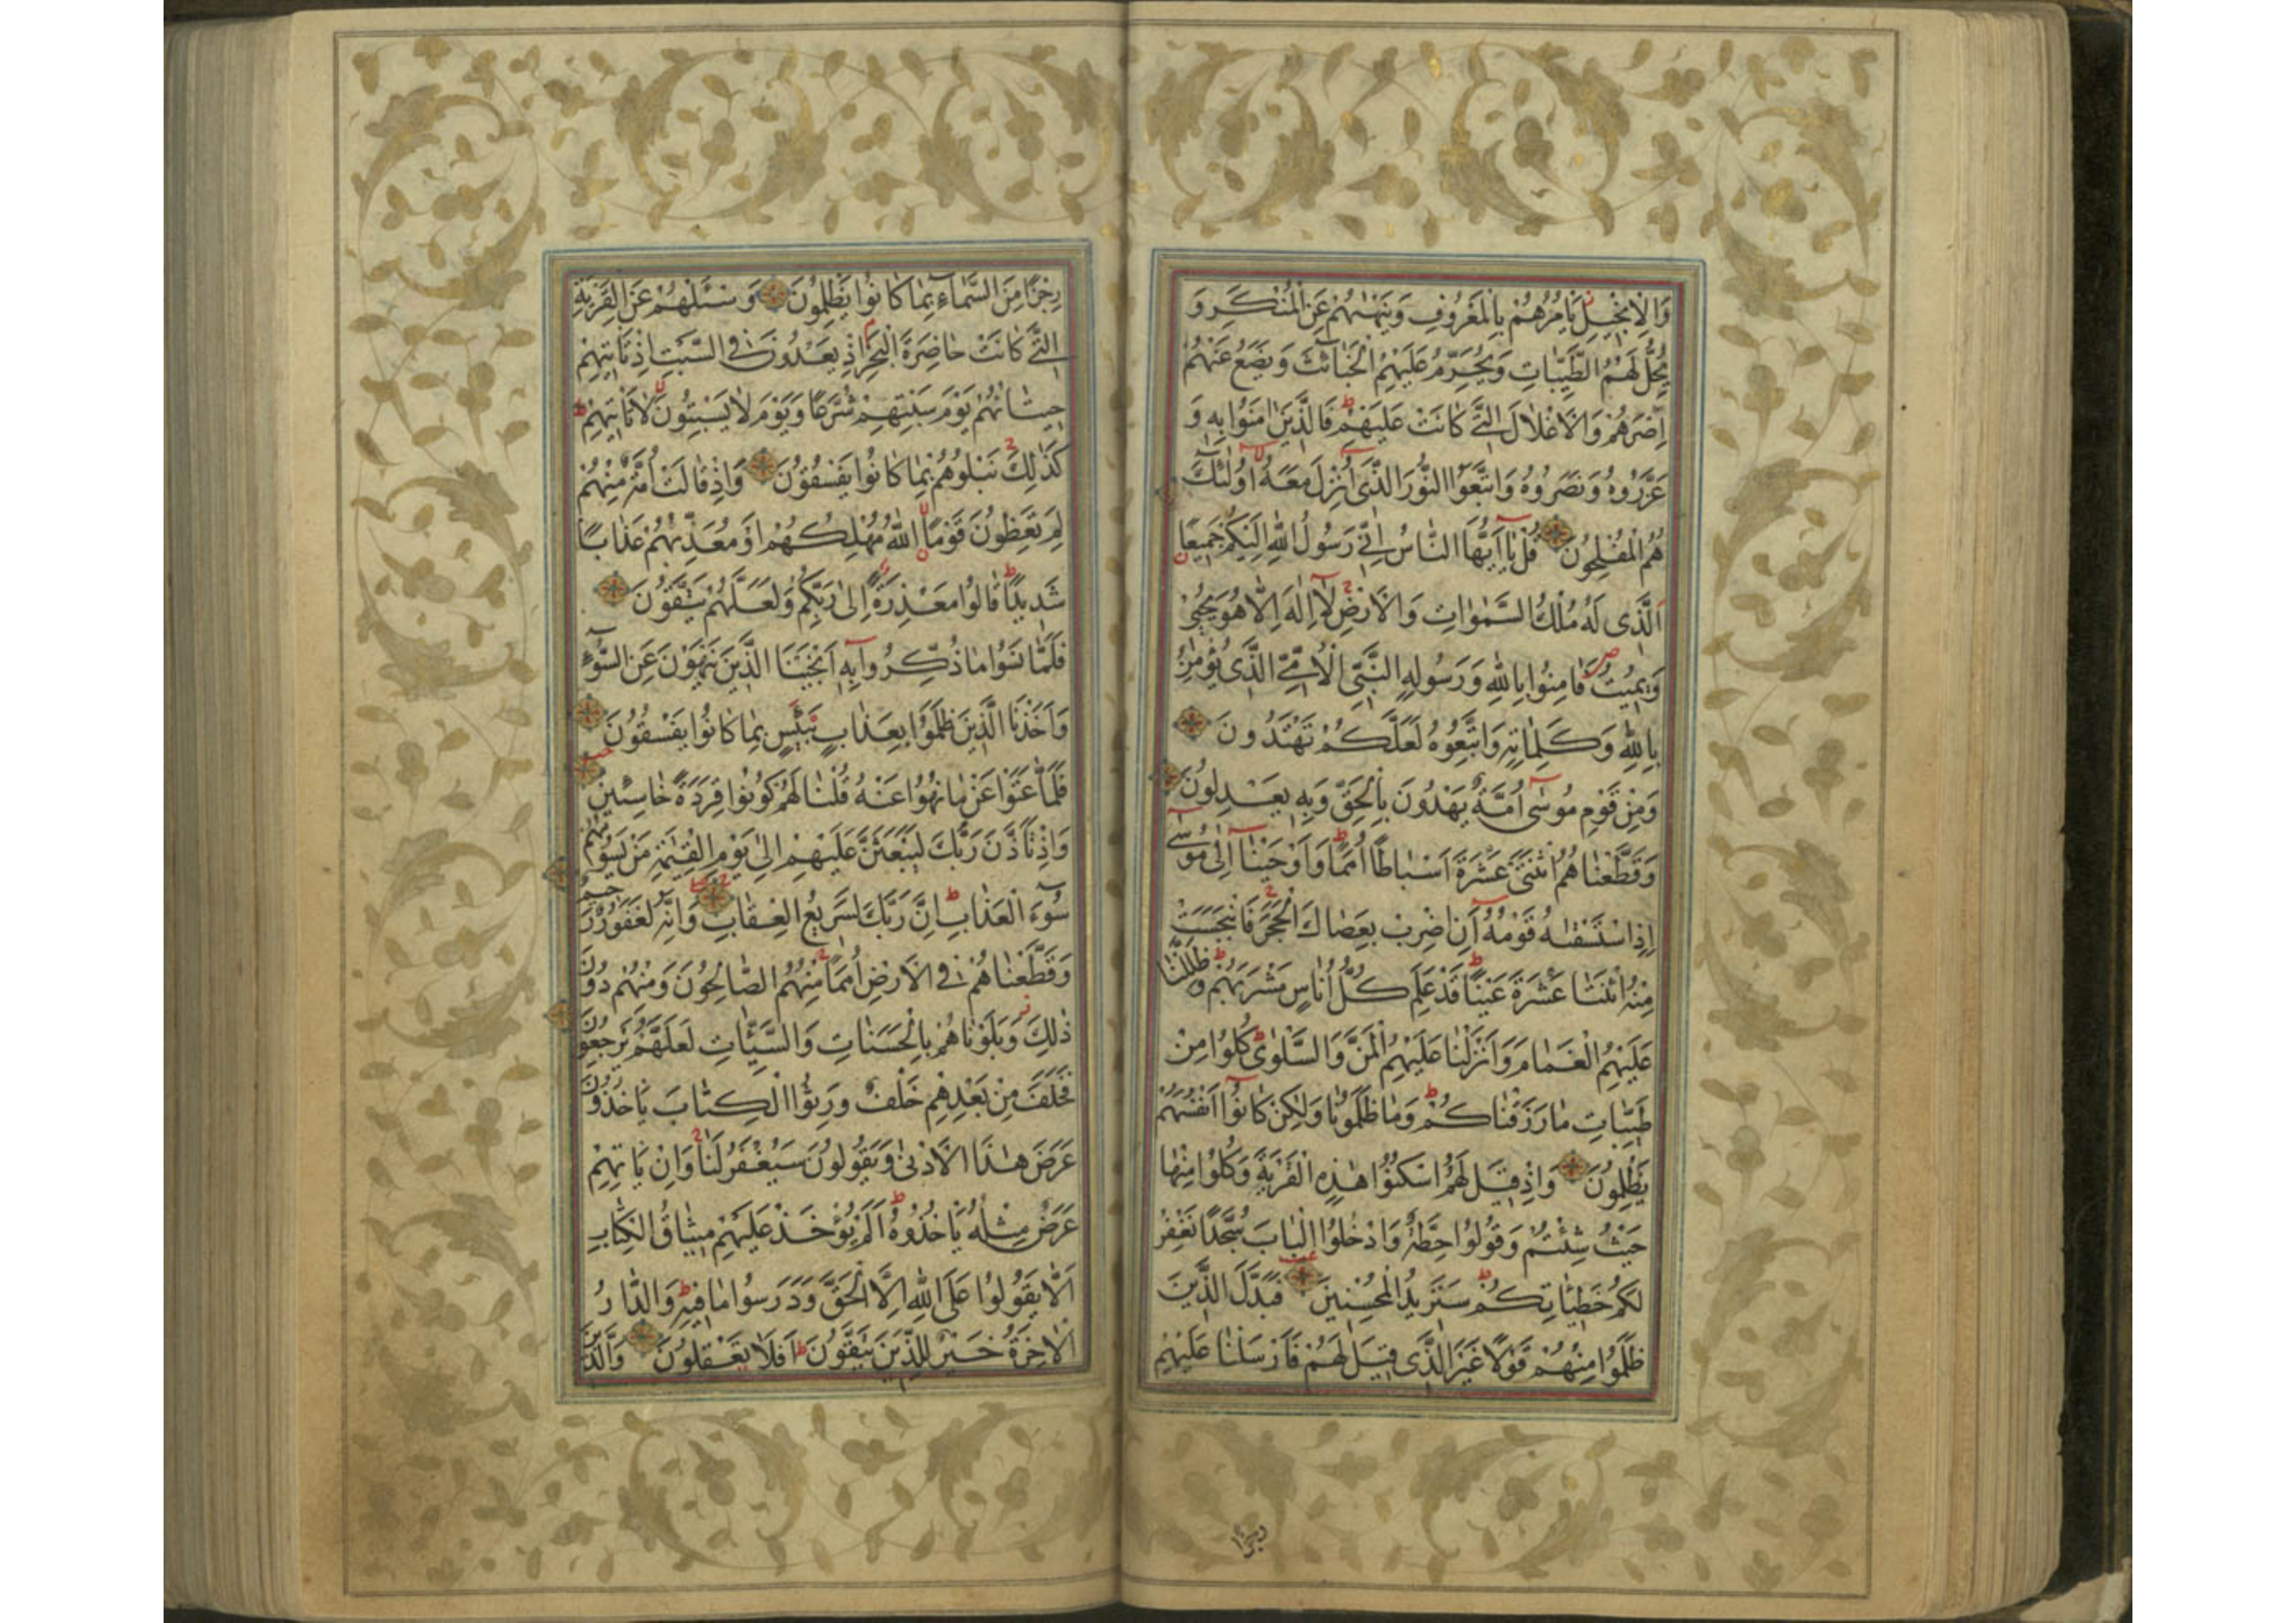 وَالْاِنْجِيلِ يَاْمُرُهُمْ بِالْمَعْرُوفِ وَيَنْهٰيهُمْ عَنِ الْمُنْكَرِ وَ
يُحِلُّ لَهُمُ الطَّيِّبَاتِ وَيُحَرِّمُ عَلَيْهِمُ الْخَبَآئِثَ وَيَضَعُ عَنْهُمْ
اِصْرَهُمْ وَالْاَغْلَالَ الَّتِى كَانَتْ عَلَيْهِمْ فَالَّذِينَ اٰمَنُوا بِهِ وَ
عَزَّرُوهُ وَنَصَرُوهُ وَاتَّبَعُوا النُّورَ الَّذِى اُنْزِلَ مَعَهُ اُولٰئِكَ
هُمُ الْمُفْلِحُونَ قُلْ يَا اَيُّهَا النَّاسُ اِنِّى رَسُولُ اللّٰهِ اِلَيْكُمْ جَمِيعًا
اَلَّذِى لَهُ مُلْكُ السَّمٰوَاتِ وَالْاَرْضِ لَا اِلٰهَ اِلَّا هُوَ يُحْيِى
وَيُمِيتُ فَاٰمِنُوا بِاللّٰهِ وَرَسُولِهِ النَّبِىِّ الْاُمِّىِّ الَّذِى يُؤْمِنُ
بِاللّٰهِ وَكَلِمَاتِهِ وَاتَّبِعُوهُ لَعَلَّكُمْ تَهْتَدُونَ
وَمِنْ قَوْمِ مُوسٰى اُمَّةٌ يَهْدُونَ بِالْحَقِّ وَبِهِ يَعْدِلُونَ
وَقَطَّعْنَاهُمُ اثْنَتَىْ عَشْرَةَ اَسْبَاطًا اُمَمًا وَاَوْحَيْنَا اِلٰى مُوسٰى
اِذِ اسْتَسْقٰيهُ قَوْمُهُ اَنِ اضْرِبْ بِعَصَاكَ الْحَجَرَ فَانْبَجَسَتْ
مِنْهُ اثْنَتَا عَشْرَةَ عَيْنًا قَدْ عَلِمَ كُلُّ اُنَاسٍ مَشْرَبَهُمْ وَظَلَّلْنَا
عَلَيْهِمُ الْغَمَامَ وَاَنْزَلْنَا عَلَيْهِمُ الْمَنَّ وَالسَّلْوٰى كُلُوا مِنْ
طَيِّبَاتِ مَا رَزَقْنَاكُمْ وَمَا ظَلَمُونَا وَلٰكِنْ كَانُوا اَنْفُسَهُمْ
يَظْلِمُونَ وَاِذْ قِيلَ لَهُمُ اسْكُنُوا هٰذِهِ الْقَرْيَةَ وَكُلُوا مِنْهَا
حَيْثُ شِئْتُمْ وَقُولُوا حِطَّةٌ وَادْخُلُوا الْبَابَ سُجَّدًا نَغْفِرْ
لَكُمْ خَطِيئَاتِكُمْ سَنَزِيدُ الْمُحْسِنِينَ فَبَدَّلَ الَّذِينَ
ظَلَمُوا مِنْهُمْ قَوْلًا غَيْرَ الَّذِى قِيلَ لَهُمْ فَاَرْسَلْنَا عَلَيْهِمْ
رجزا
رِجْزًا مِنَ السَّمَآءِ بِمَا كَانُوا يَظْلِمُونَ وَسْئَلْهُمْ عَنِ الْقَرْيَةِ
الَّتِى كَانَتْ حَاضِرَةَ الْبَحْرِ اِذْ يَعْدُونَ فِى السَّبْتِ اِذْ تَاْتِيهِمْ
حِيتَانُهُمْ يَوْمَ سَبْتِهِمْ شُرَّعًا وَيَوْمَ لَا يَسْبِتُونَ لَا تَاْتِيهِمْ
كَذٰلِكَ نَبْلُوهُمْ بِمَا كَانُوا يَفْسُقُونَ وَاِذْ قَالَتْ اُمَّةٌ مِنْهُمْ
لِمَ تَعِظُونَ قَوْمًا اللّٰهُ مُهْلِكُهُمْ اَوْ مُعَذِّبُهُمْ عَذَابًا
شَدِيدًا قَالُوا مَعْذِرَةً اِلٰى رَبِّكُمْ وَلَعَلَّهُمْ يَتَّقُونَ
فَلَمَّا نَسُوا مَا ذُكِّرُوا بِهِ اَنْجَيْنَا الَّذِينَ يَنْهَوْنَ عَنِ السُّوٓءِ
وَاَخَذْنَا الَّذِينَ ظَلَمُوا بِعَذَابٍ بَئِيسٍ بِمَا كَانُوا يَفْسُقُونَ
فَلَمَّا عَتَوْا عَنْ مَا نُهُوا عَنْهُ قُلْنَا لَهُمْ كُونُوا قِرَدَةً خَاسِئِينَ
وَاِذْ تَاَذَّنَ رَبُّكَ لَيَبْعَثَنَّ عَلَيْهِمْ اِلٰى يَوْمِ الْقِيٰمَةِ مَنْ يَسُومُهُمْ
سُوٓءَ الْعَذَابِ اِنَّ رَبَّكَ لَسَرِيعُ الْعِقَابِ وَاِنَّهُ لَغَفُورٌ رَحِيمٌ
وَقَطَّعْنَاهُمْ فِى الْاَرْضِ اُمَمًا مِنْهُمُ الصَّالِحُونَ وَمِنْهُمْ دُونَ
ذٰلِكَ وَبَلَوْنَاهُمْ بِالْحَسَنَاتِ وَالسَّيِّئَاتِ لَعَلَّهُمْ يَرْجِعُونَ
فَخَلَفَ مِنْ بَعْدِهِمْ خَلْفٌ وَرِثُوا الْكِتَابَ يَاْخُذُونَ
عَرَضَ هٰذَا الْاَدْنٰى وَيَقُولُونَ سَيُغْفَرُ لَنَا وَاِنْ يَاْتِهِمْ
عَرَضٌ مِثْلُهُ يَاْخُذُوهُ اَلَمْ يُؤْخَذْ عَلَيْهِمْ مِيثَاقُ الْكِتَابِ
اَلَّا يَقُولُوا عَلَى اللّٰهِ اِلَّا الْحَقَّ وَدَرَسُوا مَا فِيهِ وَالدَّارُ
الْاٰخِرَةُ خَيْرٌ لِلَّذِينَ يَتَّقُونَ اَفَلَا تَعْقِلُونَ وَالَّذِينَ